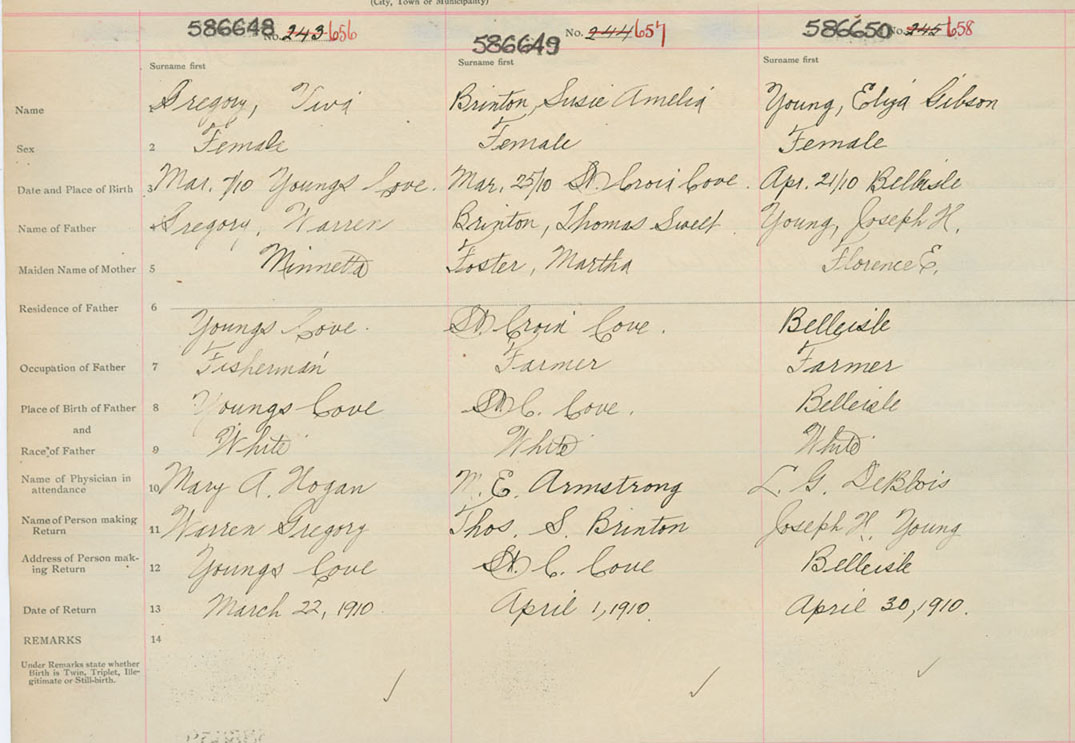 (City, Town or Municipality)
586648 No. 243 656
586649 No. 244 657
586650 No. 245 658
Surname first Surname first Surname first
Name 1 Gregory, Viva Brinton, Susie Amelia Young, Eliza Gibson
Sex 2 Female Female Female
Date and Place of Birth 3 Mar. 7/10 Youngs Cove. Mar. 25/10 St. Croix Cove. Apr. 21/10 Belleisle
Name of Father 4 Gregory, Warren Brinton, Thomas Sweet Young, Joseph H.
Maiden Name of Mother 5 Minnetta Foster, Martha Florence E.
Residence of Father 6
Youngs Cove. St. Croix Cove. Belleisle
Occupation of Father 7 Fisherman Farmer Farmer
Place of Birth of Father 8 Youngs Cove St. C. Cove. Belleisle
and
Race of Father 9 White White White
Name of Physician in
attendance 10 Mary A. Hogan M. E. Armstrong L. G. DeBlois
Name of Person making
Return 11 Warren Gregory Thos. S. Brinton Joseph H. Young
Address of Person mak-
ing Return 12 Youngs Cove St. C. Cove Belleisle
Date of Return 13 March 22, 1910. April 1, 1910. April 30, 1910.
REMARKS 14
Under Remarks state whether
Birth is Twin, Triplet, Ille-
gitimate or Still-birth.